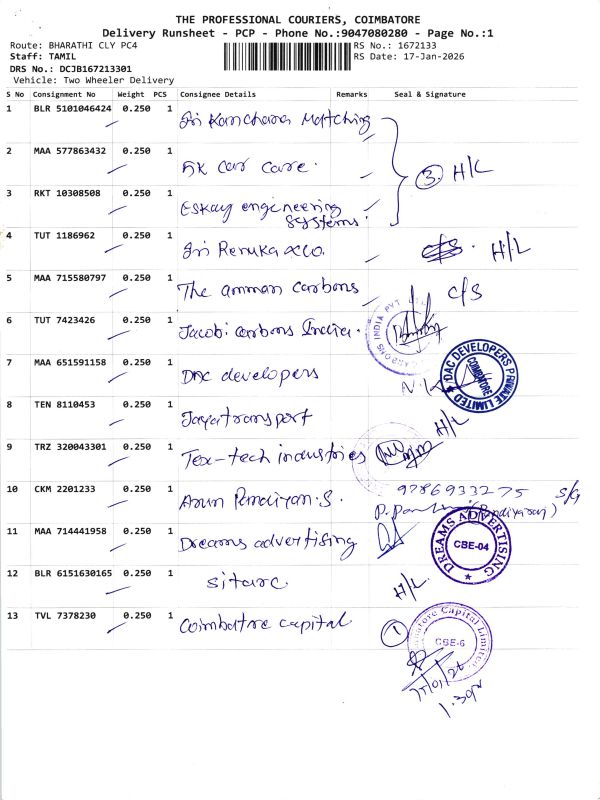 THE PROFESSIONAL COURIERS, COIMBATORE
Delivery Runsheet - PCP - Phone No.:9047080280 - Page No.:1
Route: BHARATHI CLY PC4 RS No.: 1672133
Staff: TAMIL RS Date: 17-Jan-2026
DRS No.: DCJB167213301
Vehicle: Two Wheeler Delivery
S No Consignment No Weight PCS Consignee Details Remarks Seal & Signature
1 BLR 5101046424 0.250 1 Sri Kanchana Matching
2 MAA 577863432 0.250 1 HK car care.
3. H/L
3 RKT 10308508 0.250 1 Eskay engineering
systems.
4 TUT 1186962 0.250 1 Sri Renuka &co. c/s. H/L
5 MAA 715580797 0.250 1 The amman carbons c/s
6 TUT 7423426 0.250 1 Jacobi carbons India.
CARBONS INDIA PVT
7 MAA 651591158 0.250 1 DAC developers
DAC DEVELOPERS PRIVATE LIMITED
COIMBATORE
8 TEN 8110453 0.250 1 Jaya transport H/L
9 TRZ 320043301 0.250 1 Tex-tech industries
10 CKM 2201233 0.250 1 Arun Pandiyan.S. 9786933275
11 MAA 714441958 0.250 1 Dreams advertising
DREAMS ADVERTISING
CBE-04
12 BLR 6151630165 0.250 1 sitarc. H/L
13 TVL 7378230 0.250 1 Coimbatore capital 1
Coimbatore Capital Limited
CBE-6
1.30